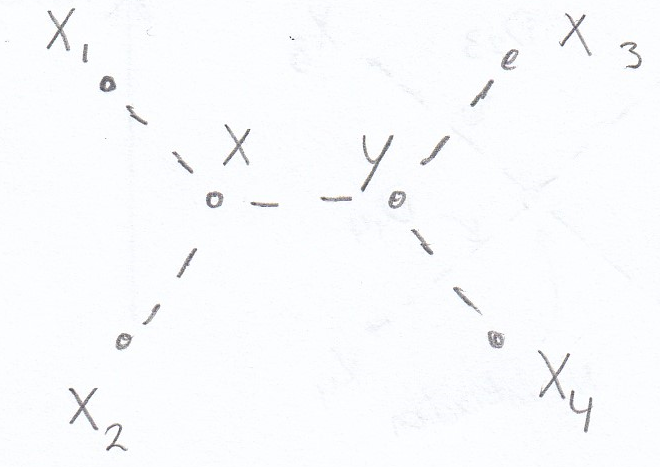 X₁
X₃
X
Y
X₂
X₄